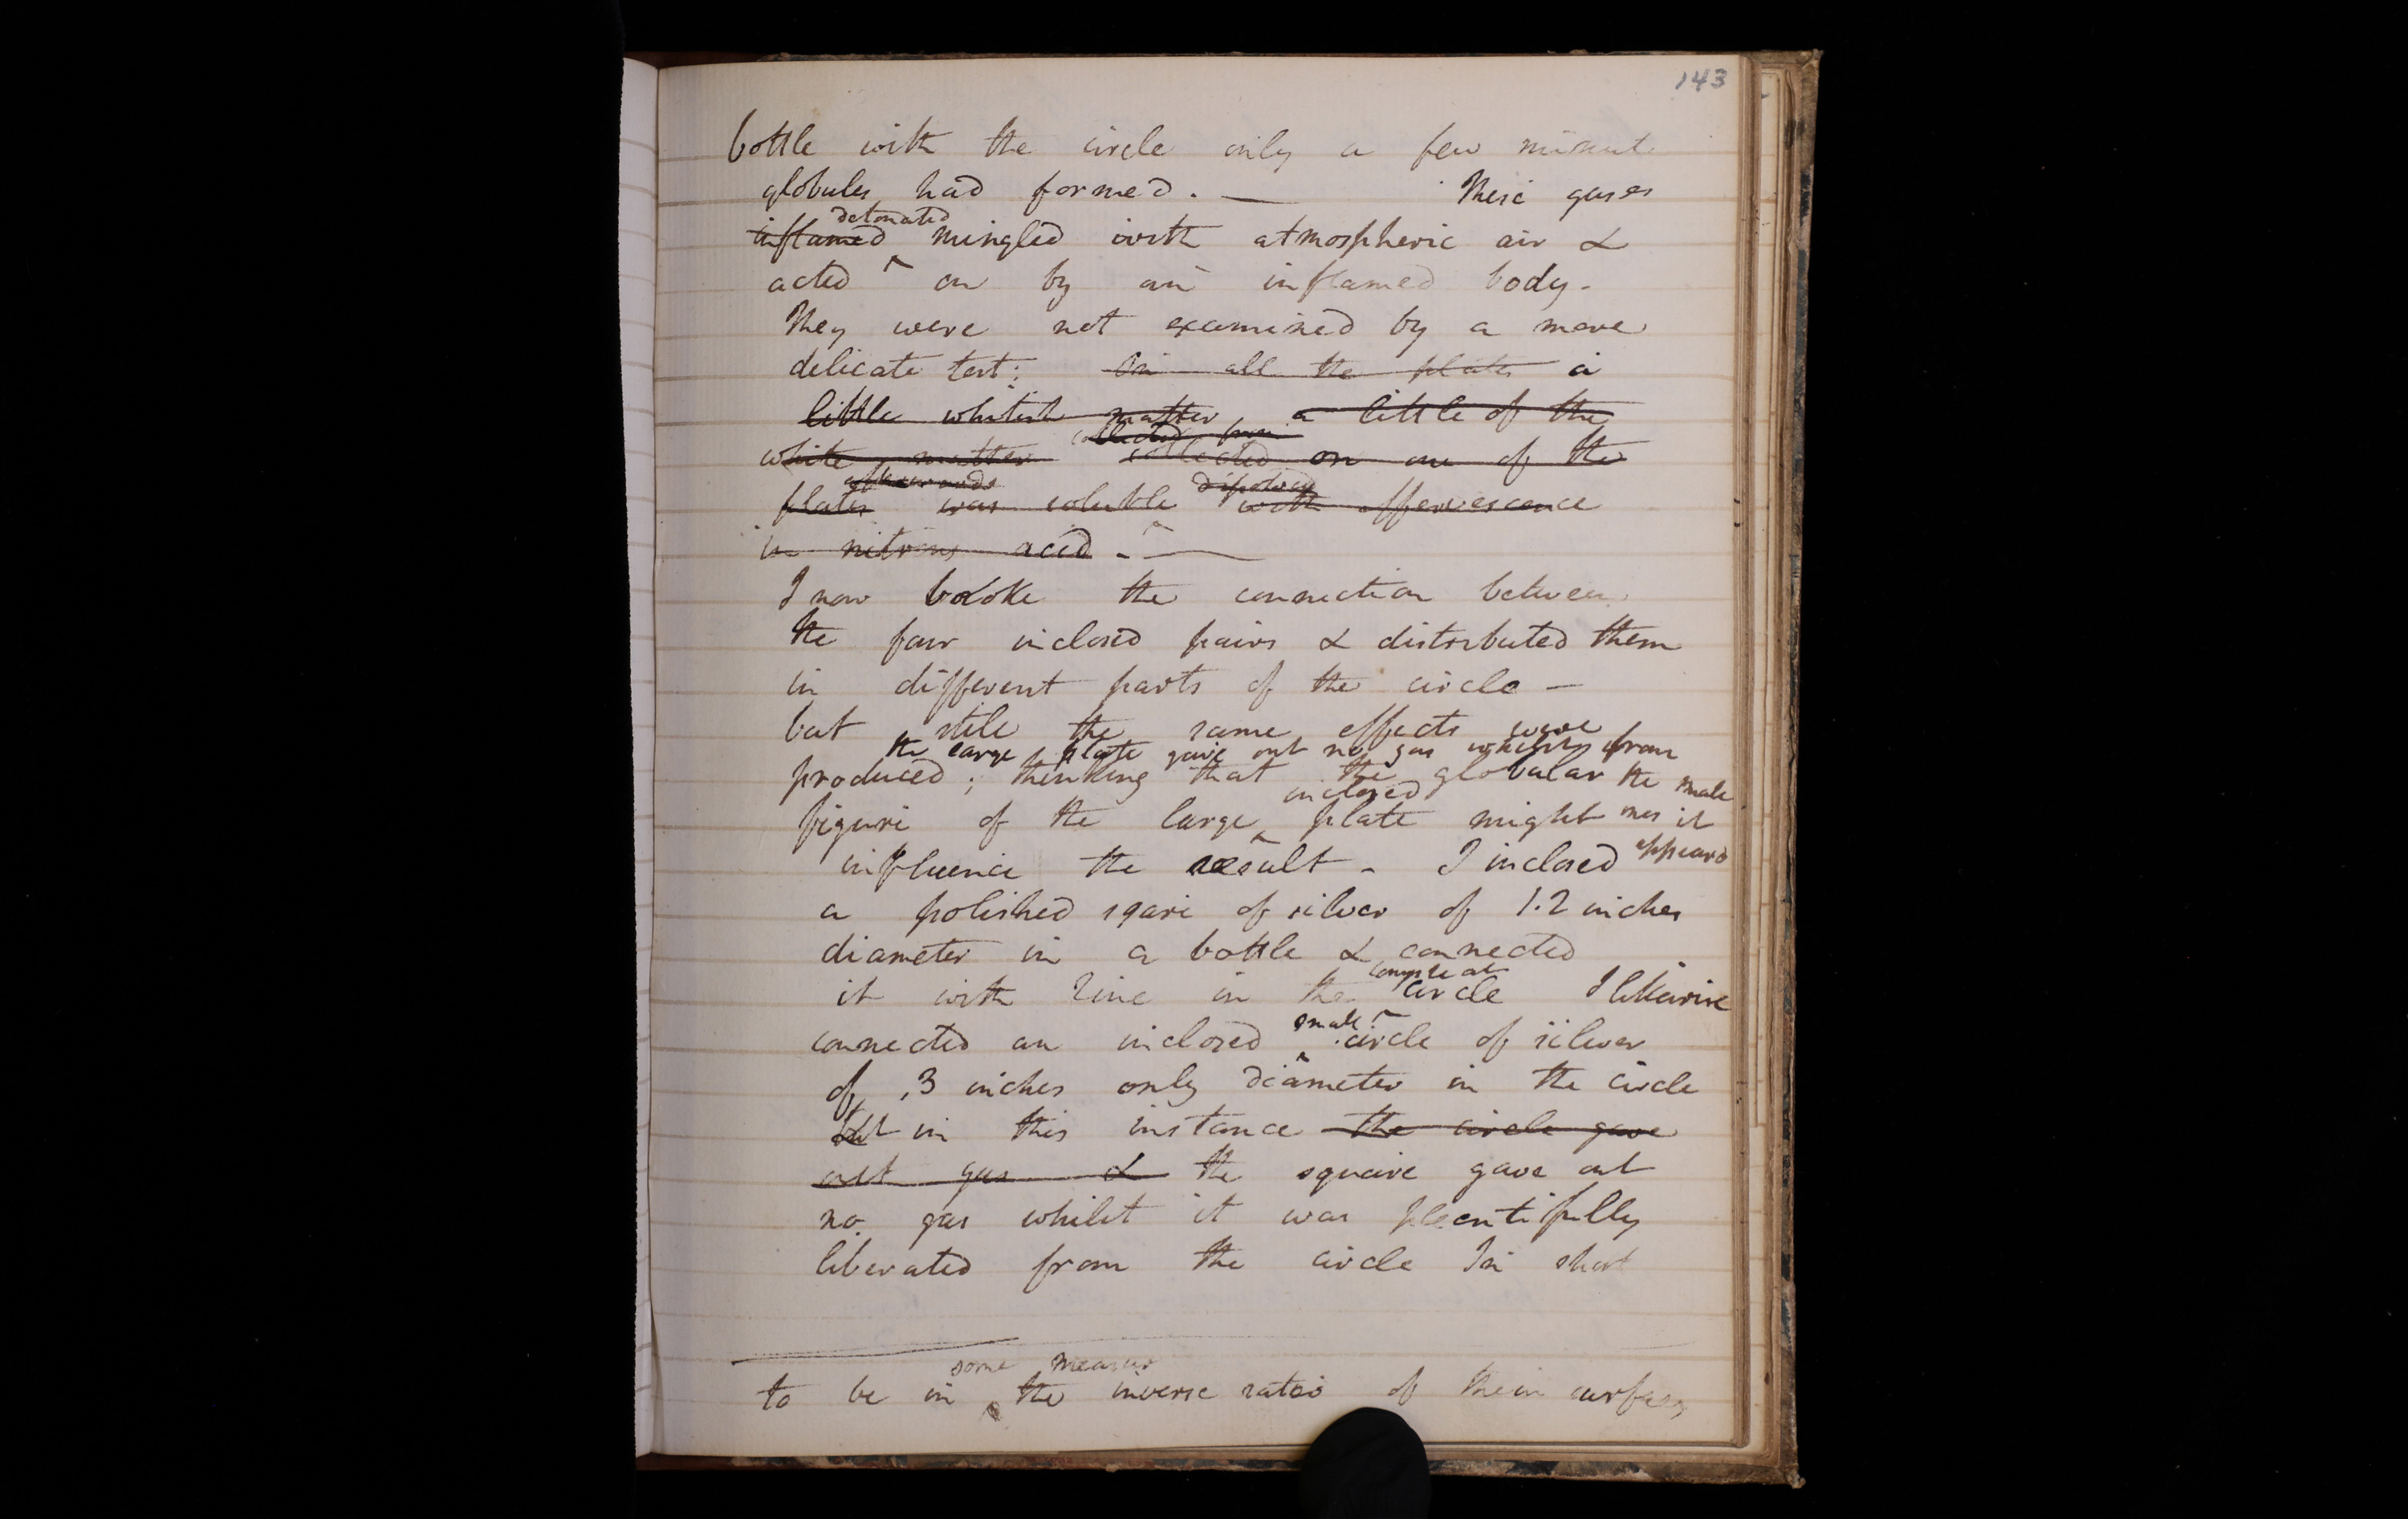 143
bottle with the circle only a few minute
globules had formed. — These gases
detonated
inflamed mingled with atmospheric air &
acted ^ on by an inflamed body -
They were not examined by a more
delicate test; On all the plates a
little whitish matter, a little of the
collected from
white matter collected on one of the
afterwards dissolved
plates was soluble with effervescence
in nitrous acid - —
I now broke the connection between
the four inclosed pairs & distributed them
in different parts of the circle —
but still the same effects were
the large plate gave out no gas whilst from
produced; thinking that the globular the small
inclosed
figure of the large ^ plate might ones it
influence the result - I inclosed appeard
a polished sqare of silver of 1.2 inches
diameter in a bottle & connected
compleat
it with zinc in the circle I likewise
small
connected an inclosed ^ circle of silver
of .3 inches only diameter in the circle
but in this instance the circle gave
out gas & the square gave out
no gas whilst it was pleentifully
liberated from the circle In short
some measure
to be in the inverse ratio of their surfaces